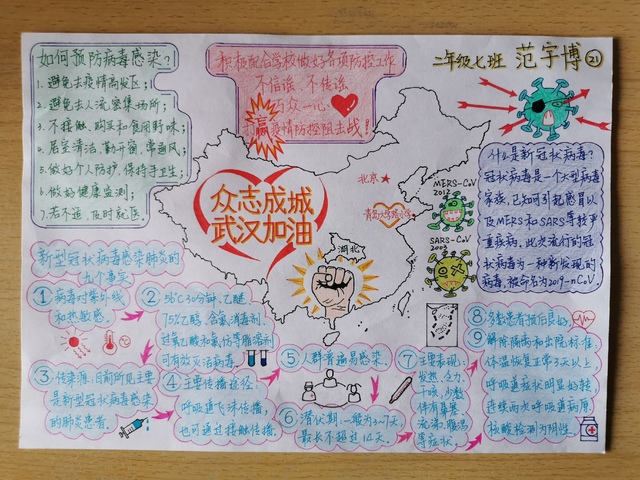 如何预防病毒感染？
1. 避免去疫情高发区；
2. 避免去人流密集场所；
3. 不接触、购买和食用野味；
4. 居室清洁，勤开窗，常通风；
5. 做好个人防护，保持手卫生；
6. 做好健康监测；
7. 若不适，及时就医。
积极配合学校做好各项防控工作
不信谣、不传谣
万众一心
打赢疫情防控阻击战！
二年级七班 范宇博 21
众志成城
武汉加油
北京
湖北
MERS-CoV
2012
SARS-CoV
2003
什么是新冠状病毒？
冠状病毒是一个大型病毒
家族，已知可引起感冒以
及MERS和SARS等较严
重疾病。此次流行的冠
状病毒为一种新发现的
病毒，被命名为2019-nCoV.
新型冠状病毒感染肺炎的
九个事实
① 病毒对紫外线
和热敏感。
② 56℃30分钟、乙醚、
75%乙醇、含氯消毒剂、
过氧乙酸和氯仿等脂溶剂
可有效灭活病毒。
③ 传染源：目前所见主要
是新型冠状病毒感染
的肺炎患者。
④ 主要传播途径：
呼吸道飞沫传播，
也可通过接触传播。
⑤ 人群普遍易感染。
⑥ 潜伏期：一般为3~7天，
最长不超过14天。
⑦ 主要表现：
发热、乏力、
干咳，少数
伴有鼻塞、
流涕、腹泻
等症状。
⑧ 多数患者预后良好。
⑨ 解除隔离和出院标准：
体温恢复正常3天以上，
呼吸道症状明显好转
连续两次呼吸道病原
核酸检测为阴性。